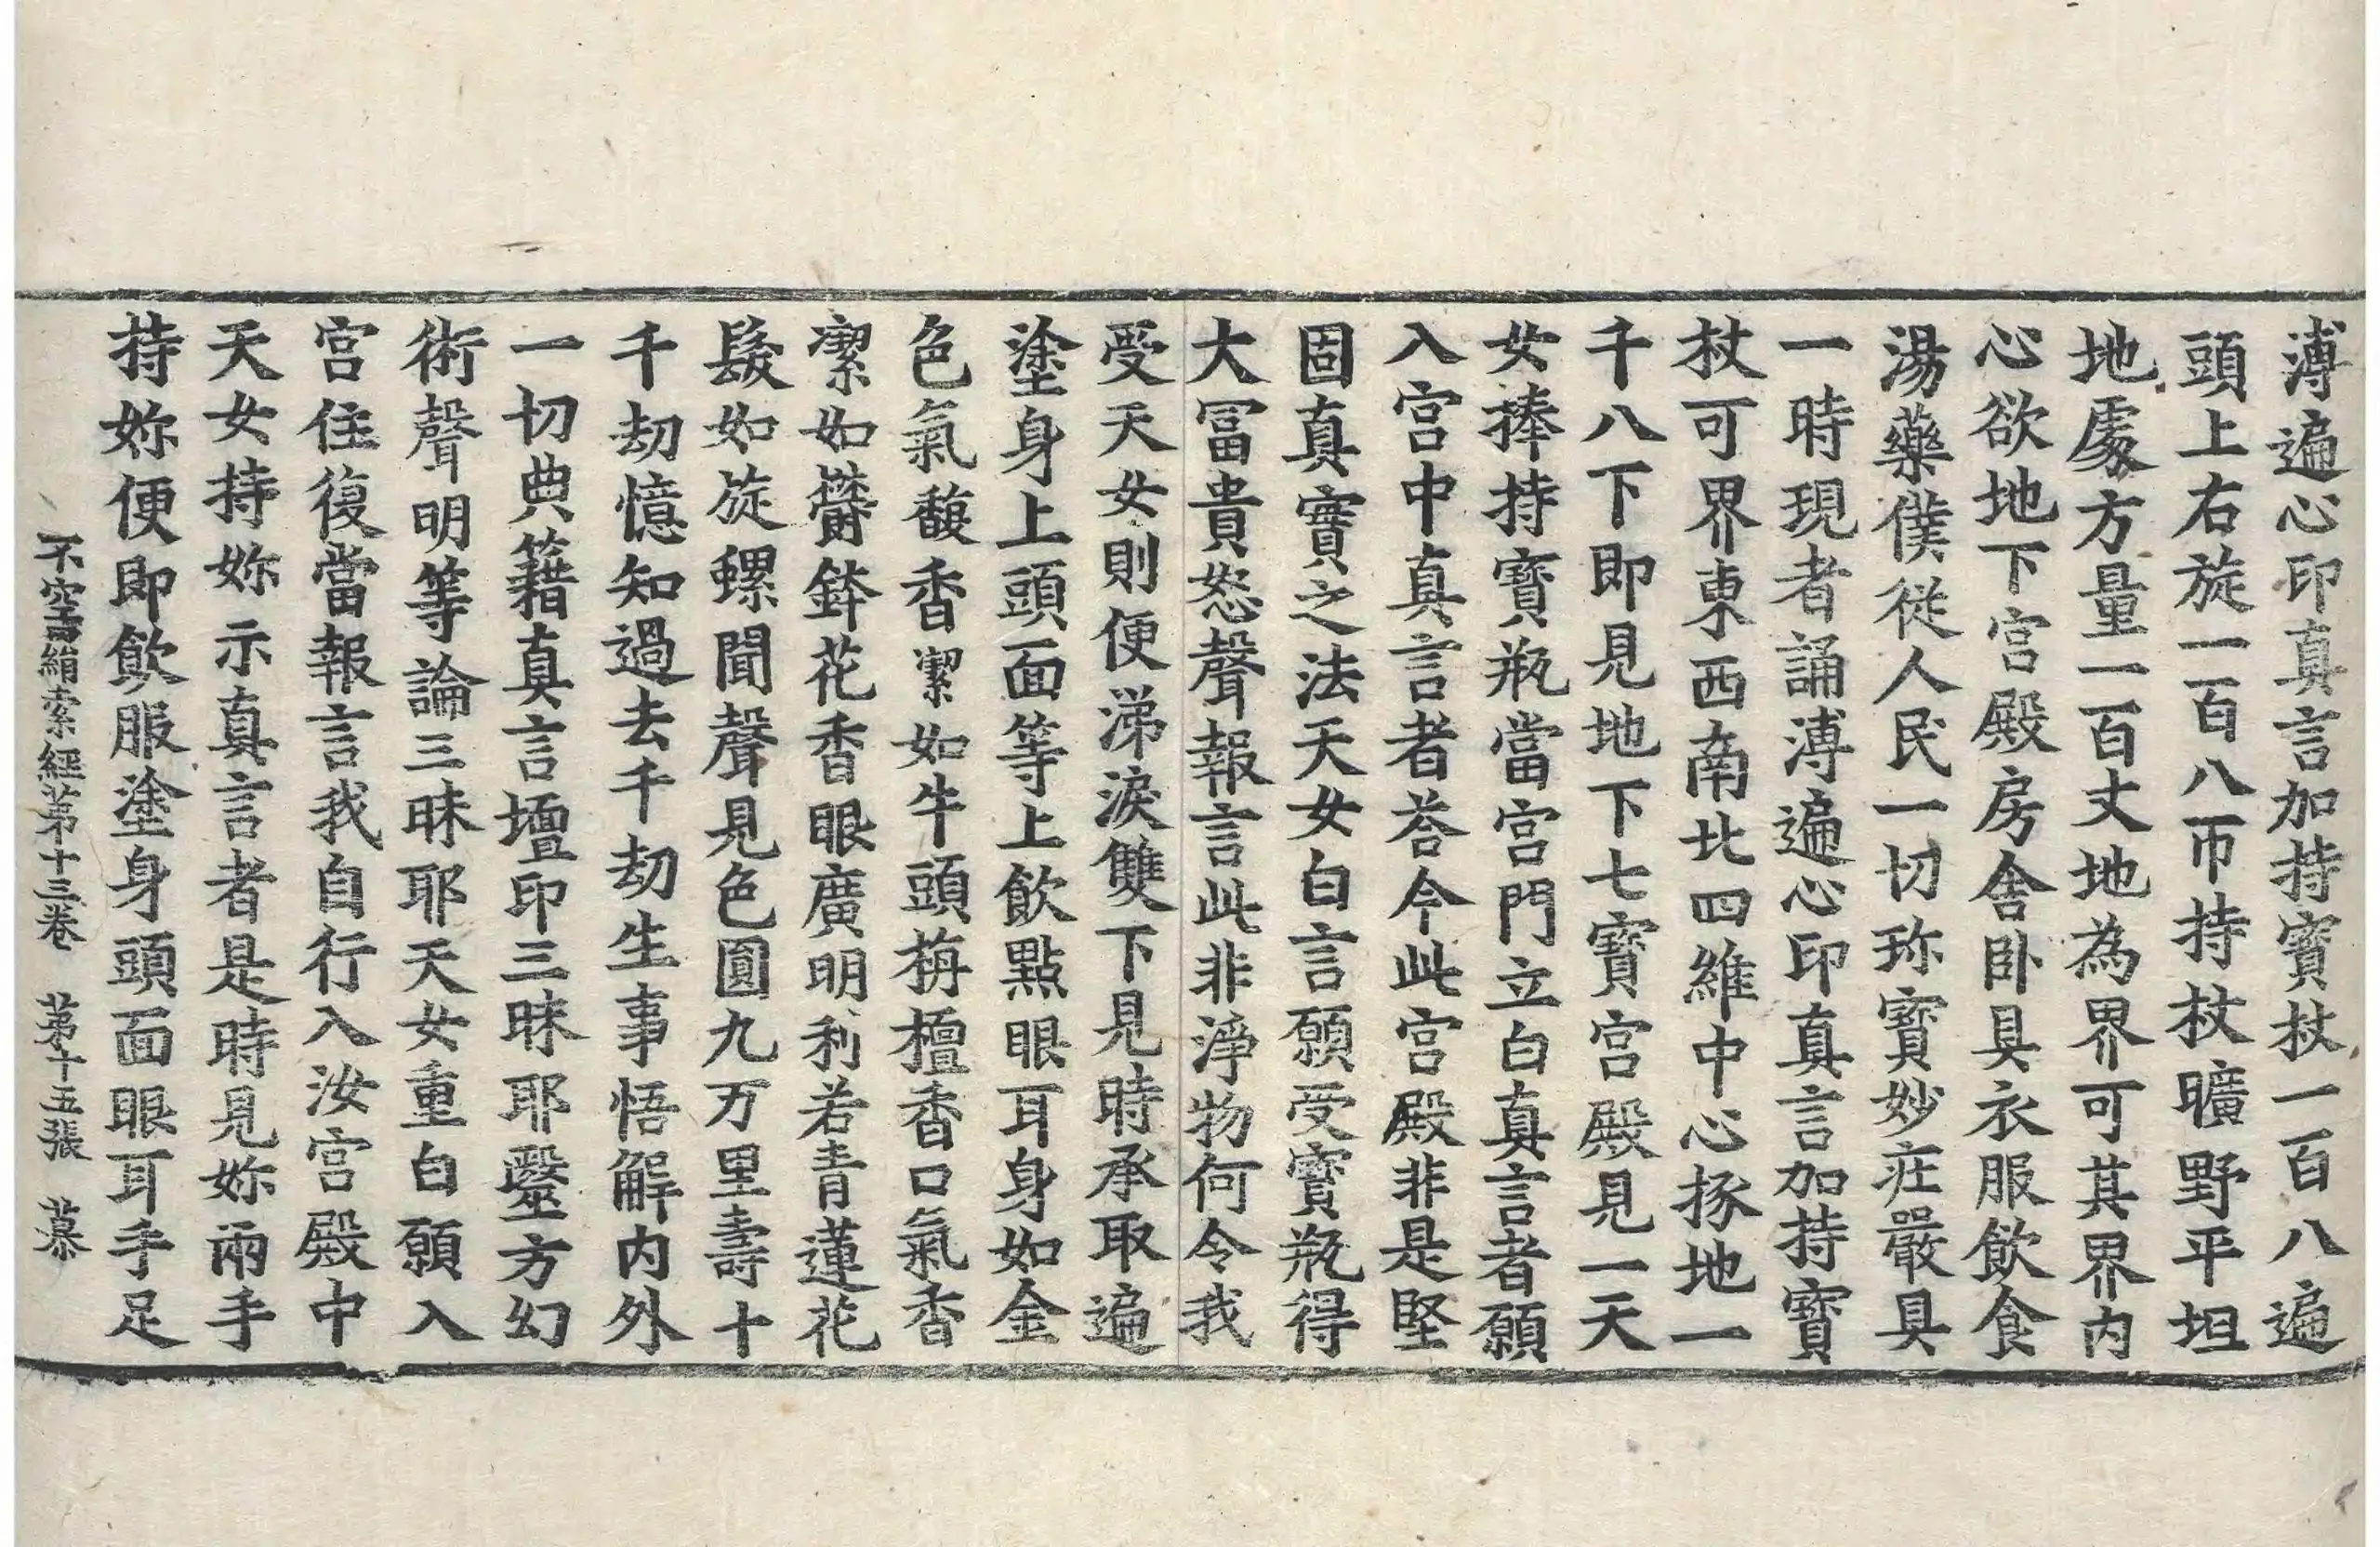 溥遍心印真言加持寶杖一百八遍
頭上右旋一百八帀持杖曠野平坦
地處方量一百丈地為界可其界內
心欲地下宮殿房舍臥具衣服飲食
湯藥僕從人民一切珎寶妙莊嚴具
一時現者誦溥遍心印真言加持寶
杖可界東西南北四維中心㧻地一
千八下即見地下七寶宮殿見一天
女捧持寶瓶當宮門立白真言者願
入宮中真言者荅今此宮殿非是堅
固真實之法天女白言願受寶瓶得
大冨貴怒聲報言此非淨物何令我
受天女則便涕淚雙下見時承取遍
塗身上頭面等上飲點眼耳身如金
色氣馥香潔如牛頭栴檀香口氣香
潔如欝鉢花香眼廣明利若青蓮花
髮如旋螺聞聲見色圓九万里壽十
千劫憶知過去千劫生事悟解內外
一切典籍真言壇印三昧耶毉方幻
術聲明等論三昧耶天女重白願入
宮住復當報言我自行入汝宮殿中
天女持妳示真言者是時見妳兩手
持妳便即飲服塗身頭面眼耳手足
不空罥索經第十三卷　第十五張　慕